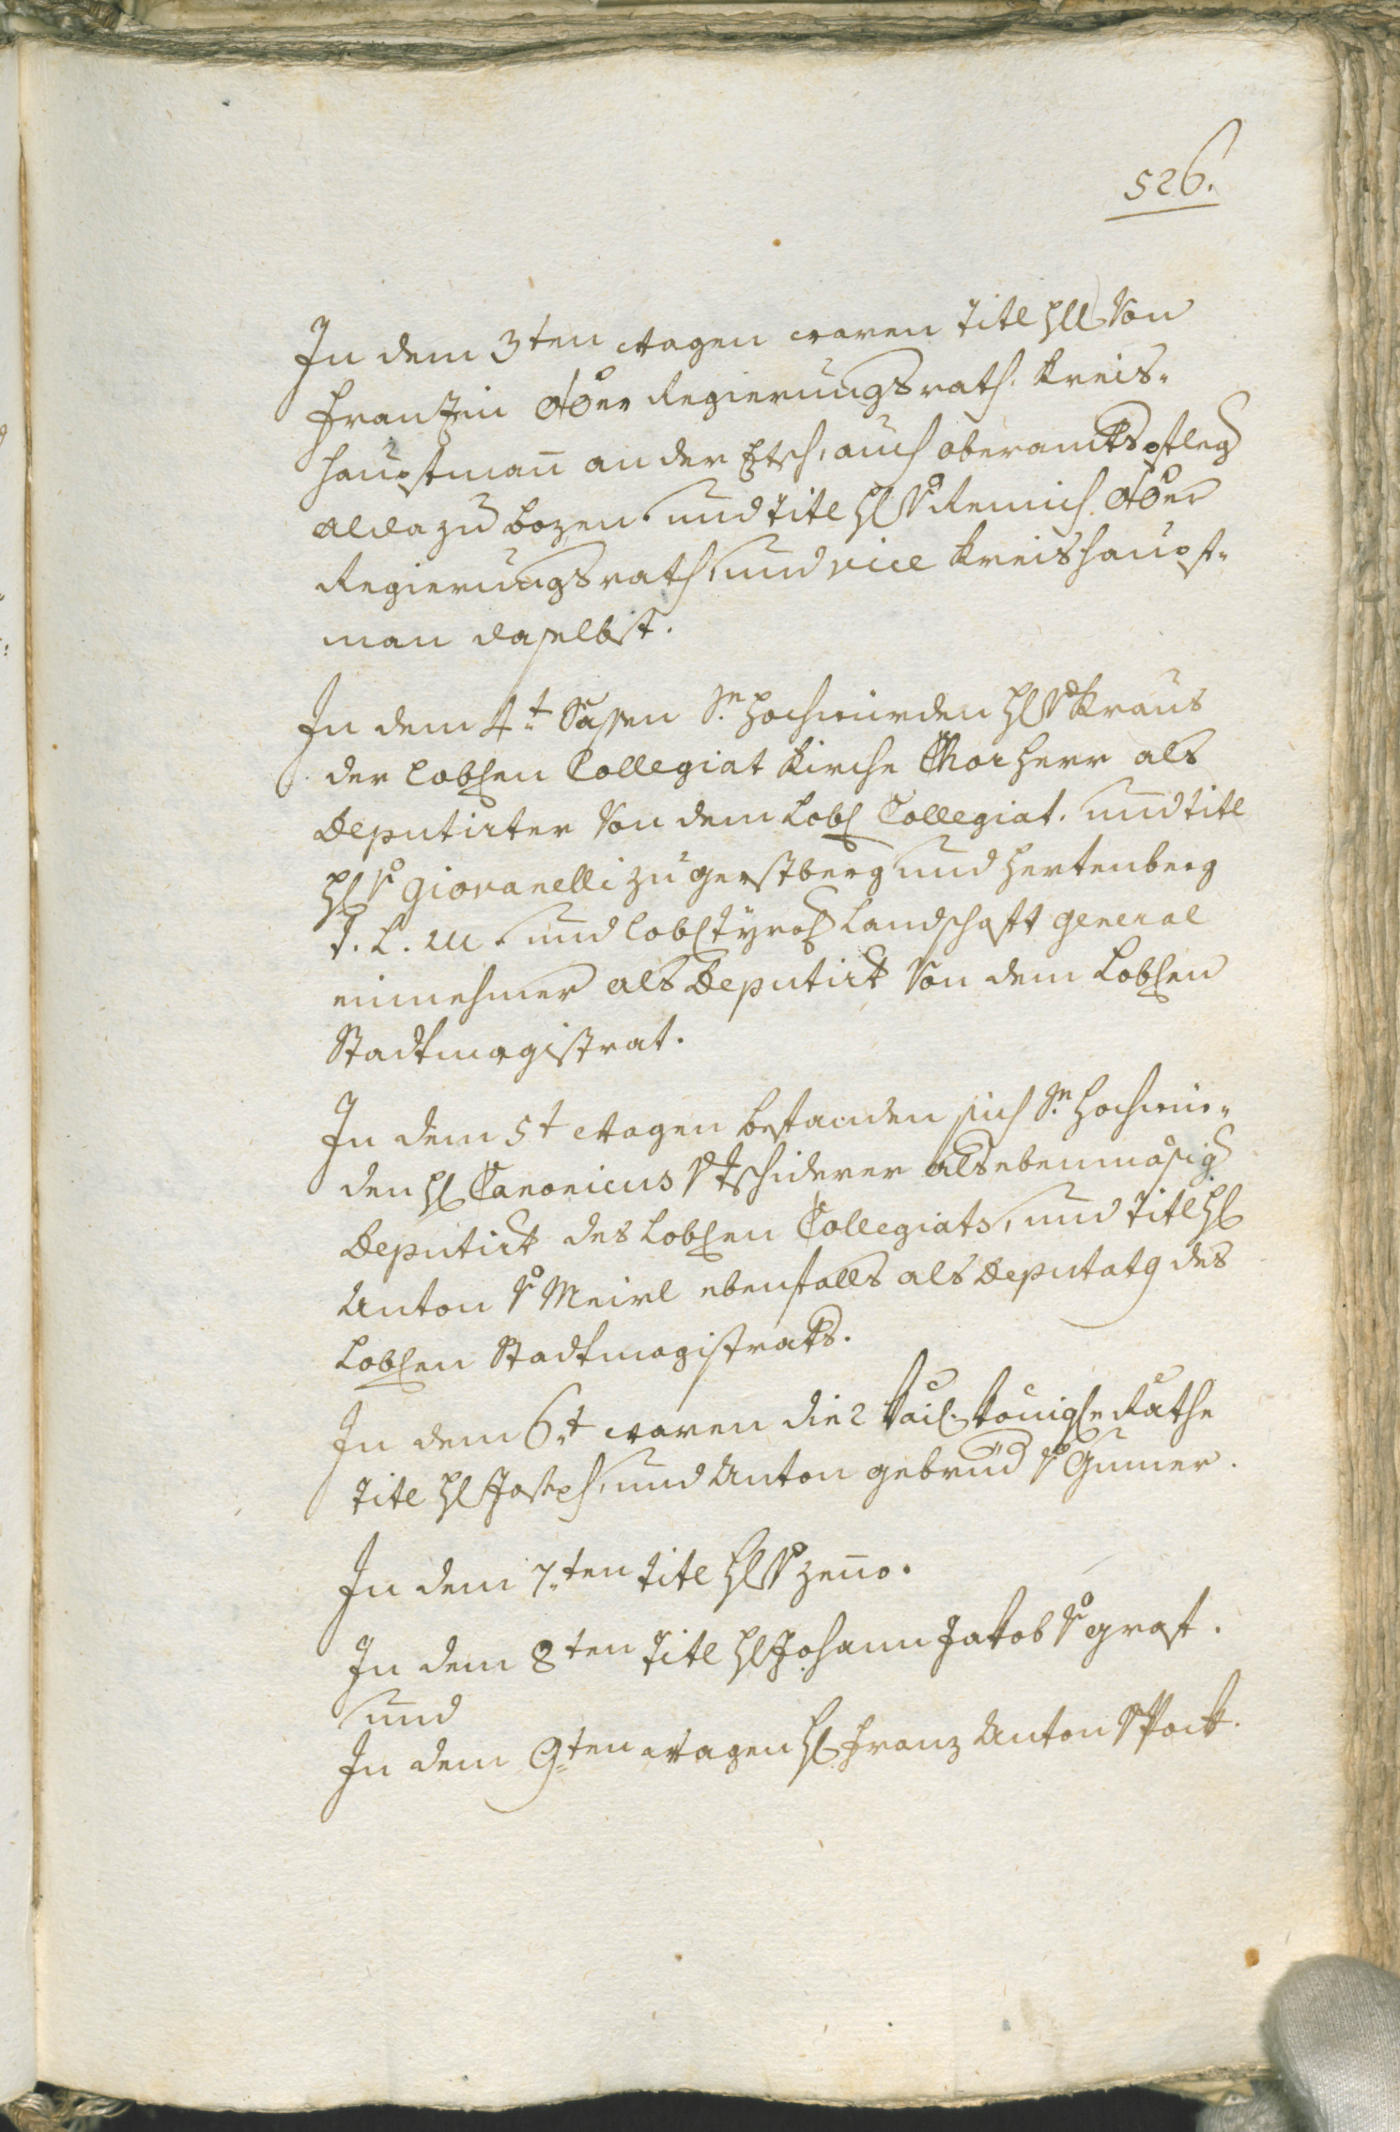 526.
In dem 3ten Wagen waren Titl Hℓℓ Von
Franzin OÖer Regierungsrath. Kreis-
hauptmañ an der Etsch, auch oberamtspfleg
alda zu bozen. und Titl Hℓ V Remich OÖer
Regierungsrath, und vice Kreishaupt-
man daselbst.
In dem 4t Sassen Sn Hochwürden Hℓ V Kraus
der Lobℓen Collegiat Kirche Chorherr als
Deputirter Von dem Lobℓ Collegiat. und titl
Hℓ V Giovanelli zu gerstberg und Hertenberg
T. L. M. und Lobℓ tyrolℓ Landschaft general
einnehmer als Deputirt Von dem Lobℓen
Stadtmagistrat.
In dem 5t Wagen befanden sich Sn Hochwür-
den Hℓ Canonicus V Tschiderer als ebenmäsig
Deputirt des Lobℓen Collegiats, und Titl Hℓ
Anton V Meirl ebenfalls als Deputatg des
Lobℓen Stadtmagistrats.
In dem 6t waren die 2 Kaiℓ. Königℓe Räthe
Titl Hℓ Joseph, und Anton gebrüd V Gumer.
In dem 7ten Titl Hℓ V Zeño.
In dem 8ten Titl Hℓ Johann Jakob V graf.
und
In dem 9ten Wagen Hℓ Franz Anton V Pock.